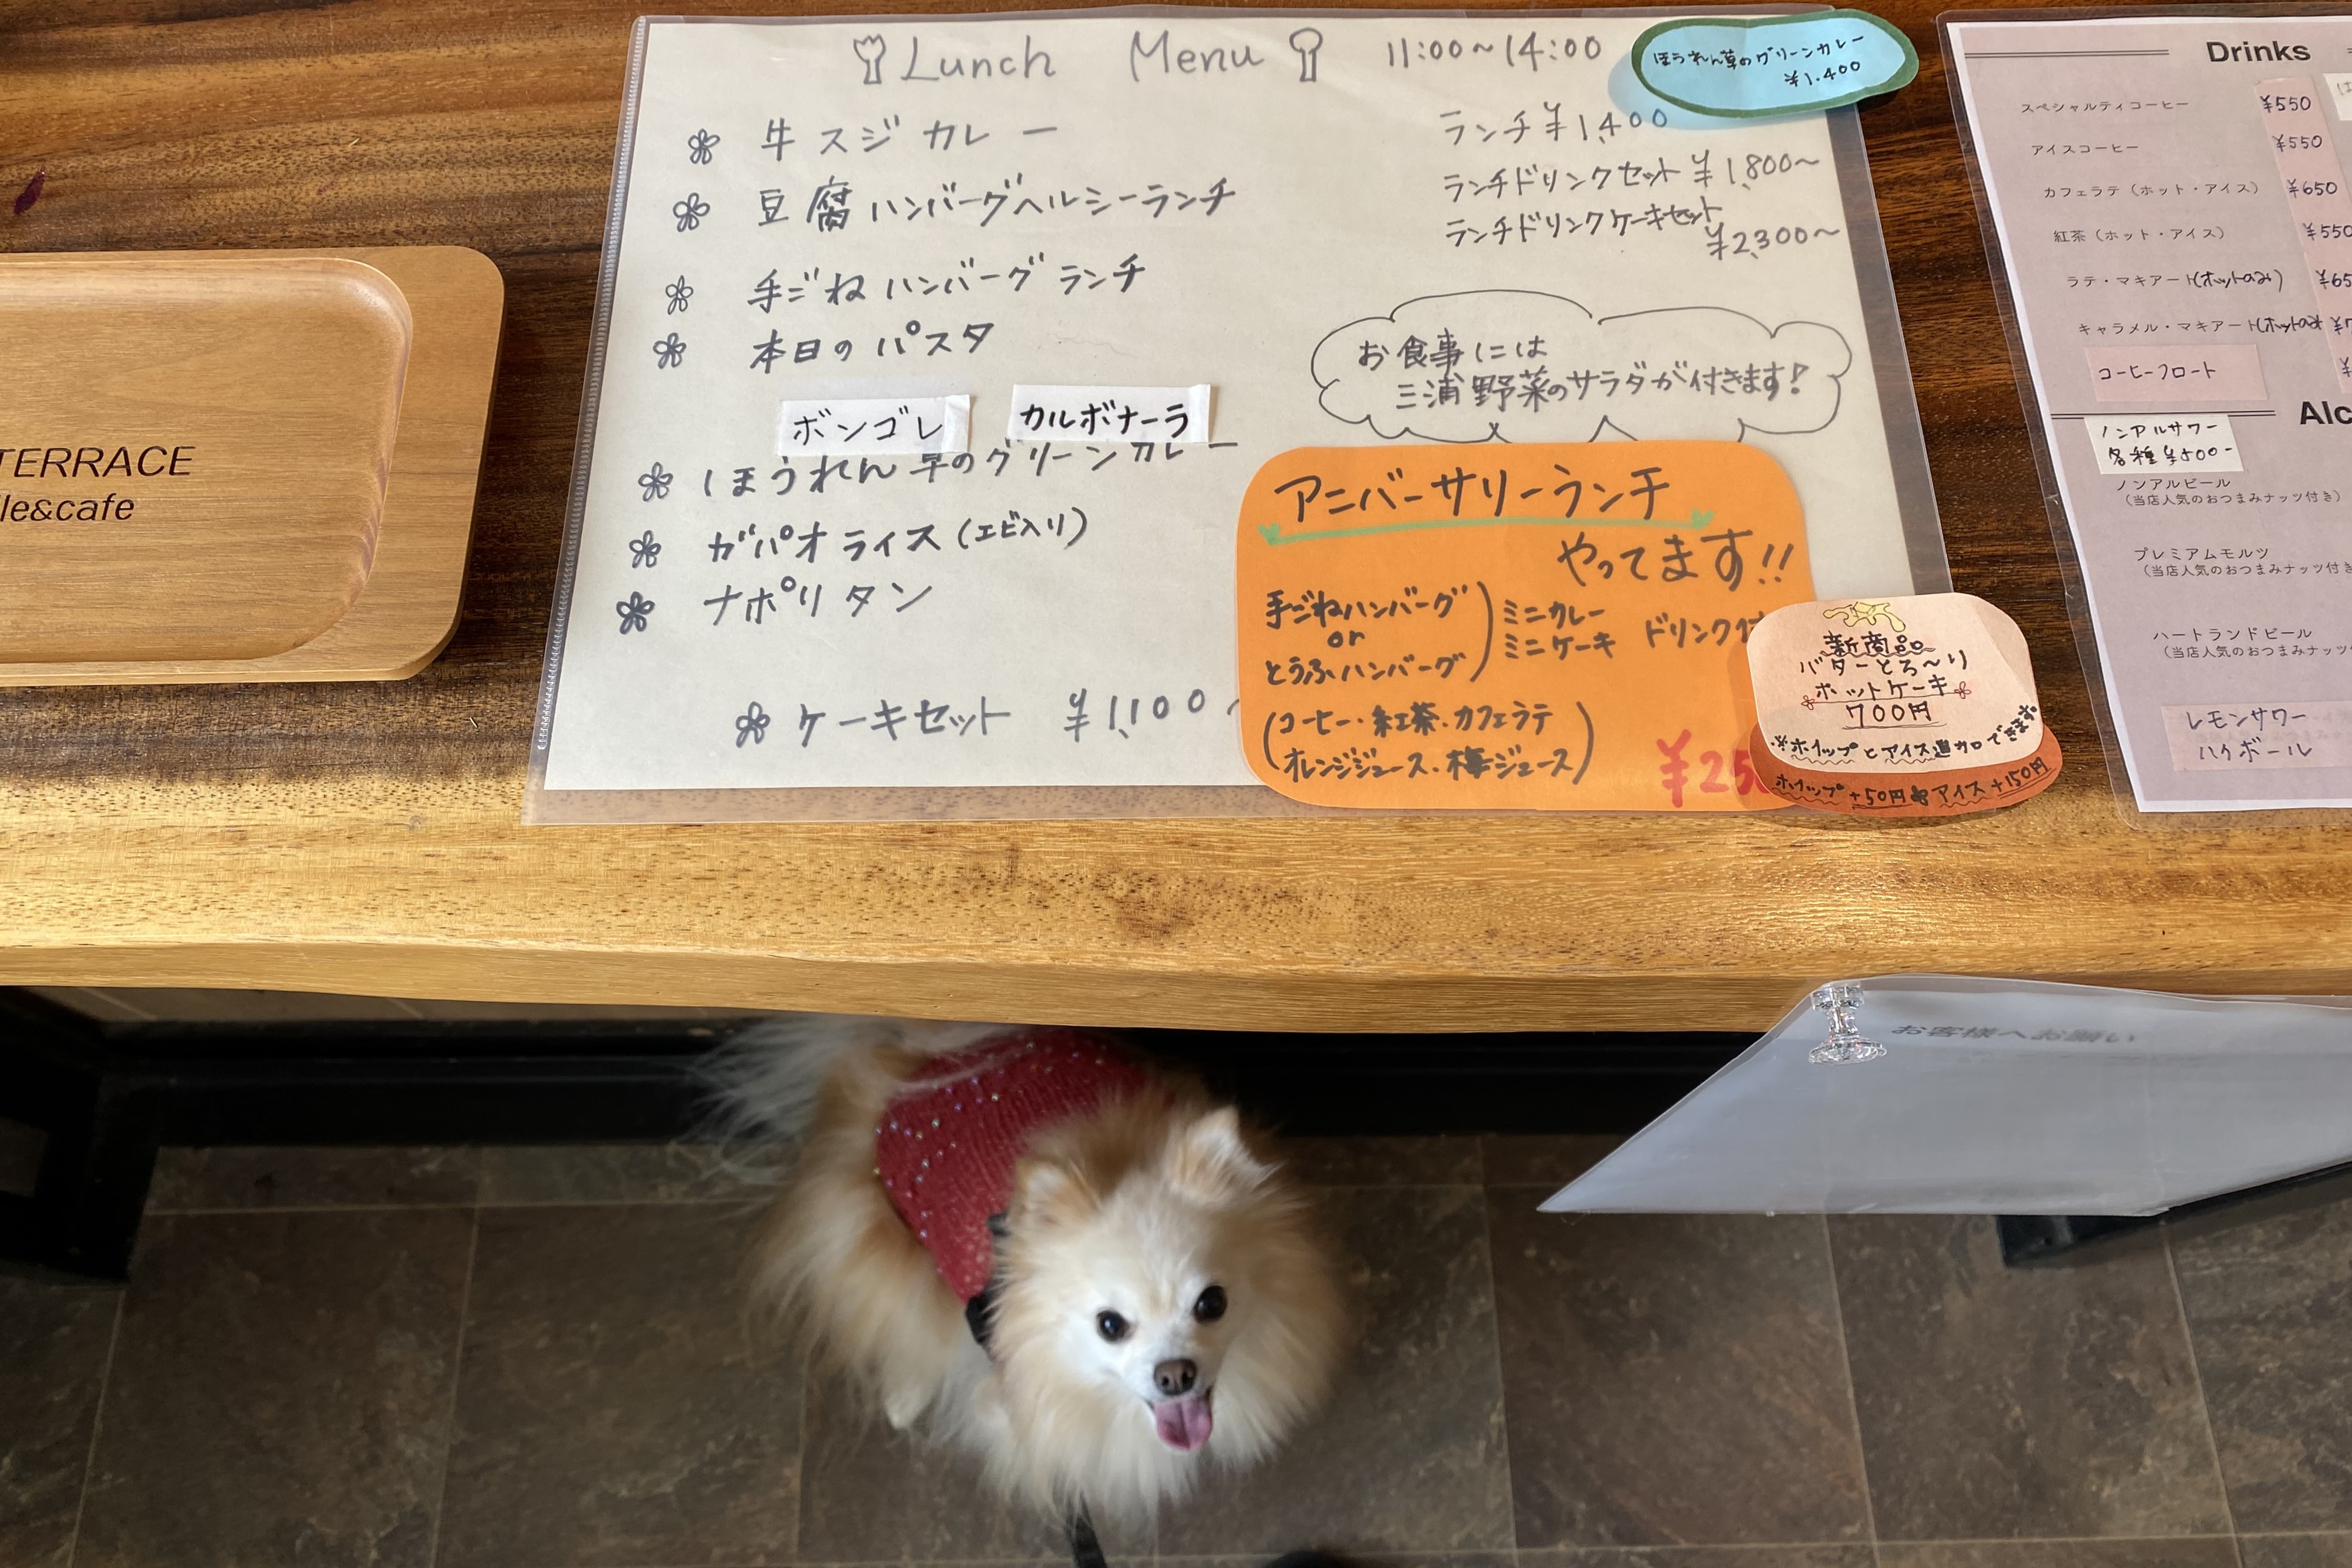 TERRACE
le&cafe
Lunch Menu 11:00~14:00
牛スジカレー
豆腐ハンバーグヘルシーランチ
手ごねハンバーグランチ
本日のパスタ
ボンゴレ カルボナーラ
ほうれん草のグリーンカレー
ガパオライス(エビ入り)
ナポリタン
ケーキセット ¥1,100~
ほうれん草のグリーンカレー
¥1,400
ランチ ¥1,400
ランチドリンクセット ¥1,800~
ランチドリンクケーキセット
¥2,300~
お食事には
三浦野菜のサラダが付きます!
アニバーサリーランチ
やってます!!
手ごねハンバーグ
or
とうふハンバーグ
ミニカレー
ミニケーキ ドリンク付
(コーヒー・紅茶・カフェラテ
オレンジジュース・梅ジュース)
新商品
バターとろ~り
ホットケーキ
700円
※ホイップとアイス追加できます。
ホイップ+50円 アイス+150円
Drinks
スペシャルティコーヒー ¥550
アイスコーヒー ¥550
カフェラテ(ホット・アイス) ¥650
紅茶(ホット・アイス) ¥550
ラテ・マキアート(ホットのみ) ¥65
キャラメル・マキアート(ホットのみ
コーヒーフロート
Alc
ノンアルサワー
各種¥500-
ノンアルビール
(当店人気のおつまみナッツ付き)
プレミアムモルツ
(当店人気のおつまみナッツ付き
ハートランドビール
(当店人気のおつまみナッツ
レモンサワー
ハイボール
お客様へお願い